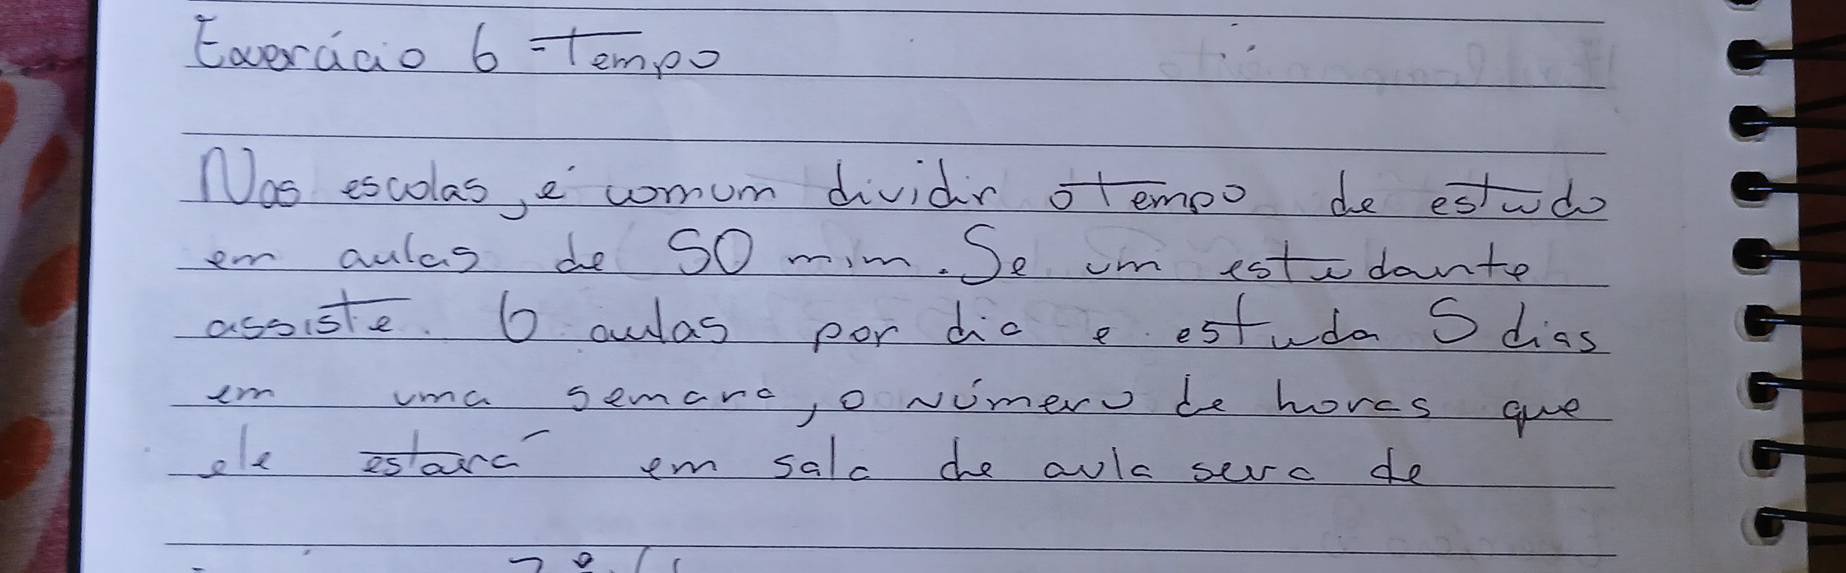 Exercício 6 - Tempo
Nas escolas, é comum dividir o tempo de estudo
em aulas de 50 mim. Se um estudante
assiste 6 aulas por dia e estuda 5 dias
em uma semana, o número de horas que
ele estará em sala de aula sera de